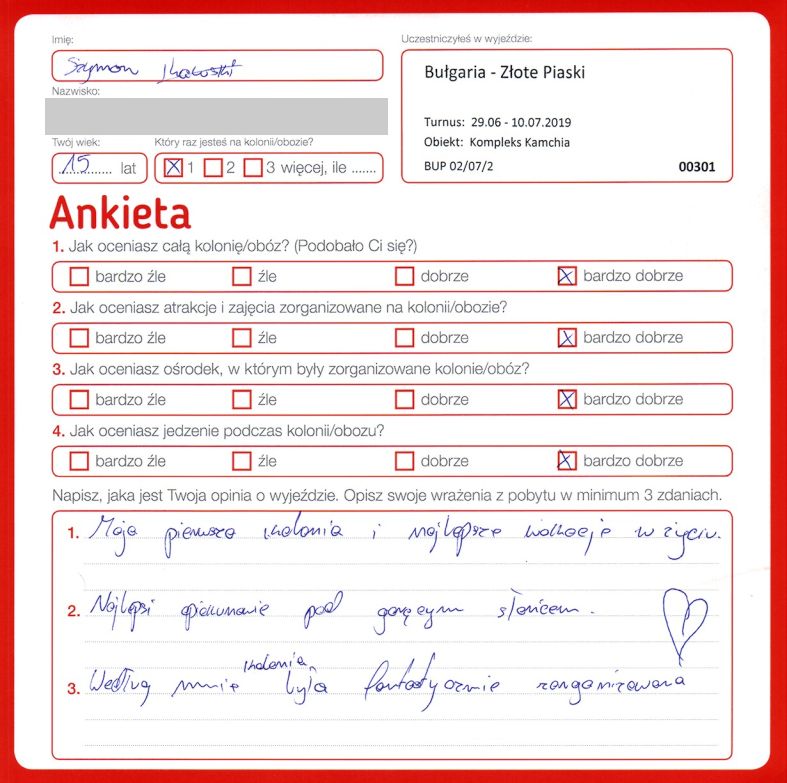 Imię:
Uczestniczyłeś w wyjeździe:
Szymon
Bułgaria - Złote Piaski
Nazwisko:
Turnus: 29.06 - 10.07.2019
Twój wiek:
Który raz jesteś na kolonii/obozie?
Obiekt: Kompleks Kamchia
15 lat
1 2 3 więcej, ile .......
BUP 02/07/2 00301
Ankieta
1. Jak oceniasz całą kolonię/obóz? (Podobało Ci się?)
bardzo źle źle dobrze bardzo dobrze
2. Jak oceniasz atrakcje i zajęcia zorganizowane na kolonii/obozie?
bardzo źle źle dobrze bardzo dobrze
3. Jak oceniasz ośrodek, w którym były zorganizowane kolonie/obóz?
bardzo źle źle dobrze bardzo dobrze
4. Jak oceniasz jedzenie podczas kolonii/obozu?
bardzo źle źle dobrze bardzo dobrze
Napisz, jaka jest Twoja opinia o wyjeździe. Opisz swoje wrażenia z pobytu w minimum 3 zdaniach.
1. Moja pierwsza kolonia i najlepsze wakacje w życiu.
2. Najlepsi opiekunowie pod gorącym słońcem.
3. Według mnie kolonia była fantastycznie zorganizowana